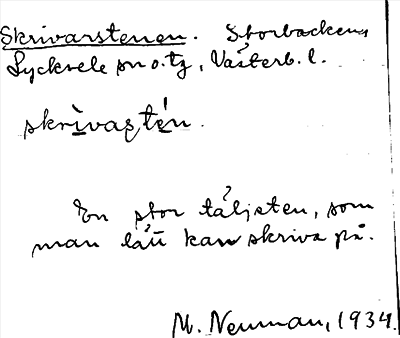 Skrivarstenen. Storbackens
Lycksele sn o. tg, Västerb. l.
skrìvaʂtén.
En stor täljsten, som
man lätt kan skriva på.
M. Neuman, 1934.